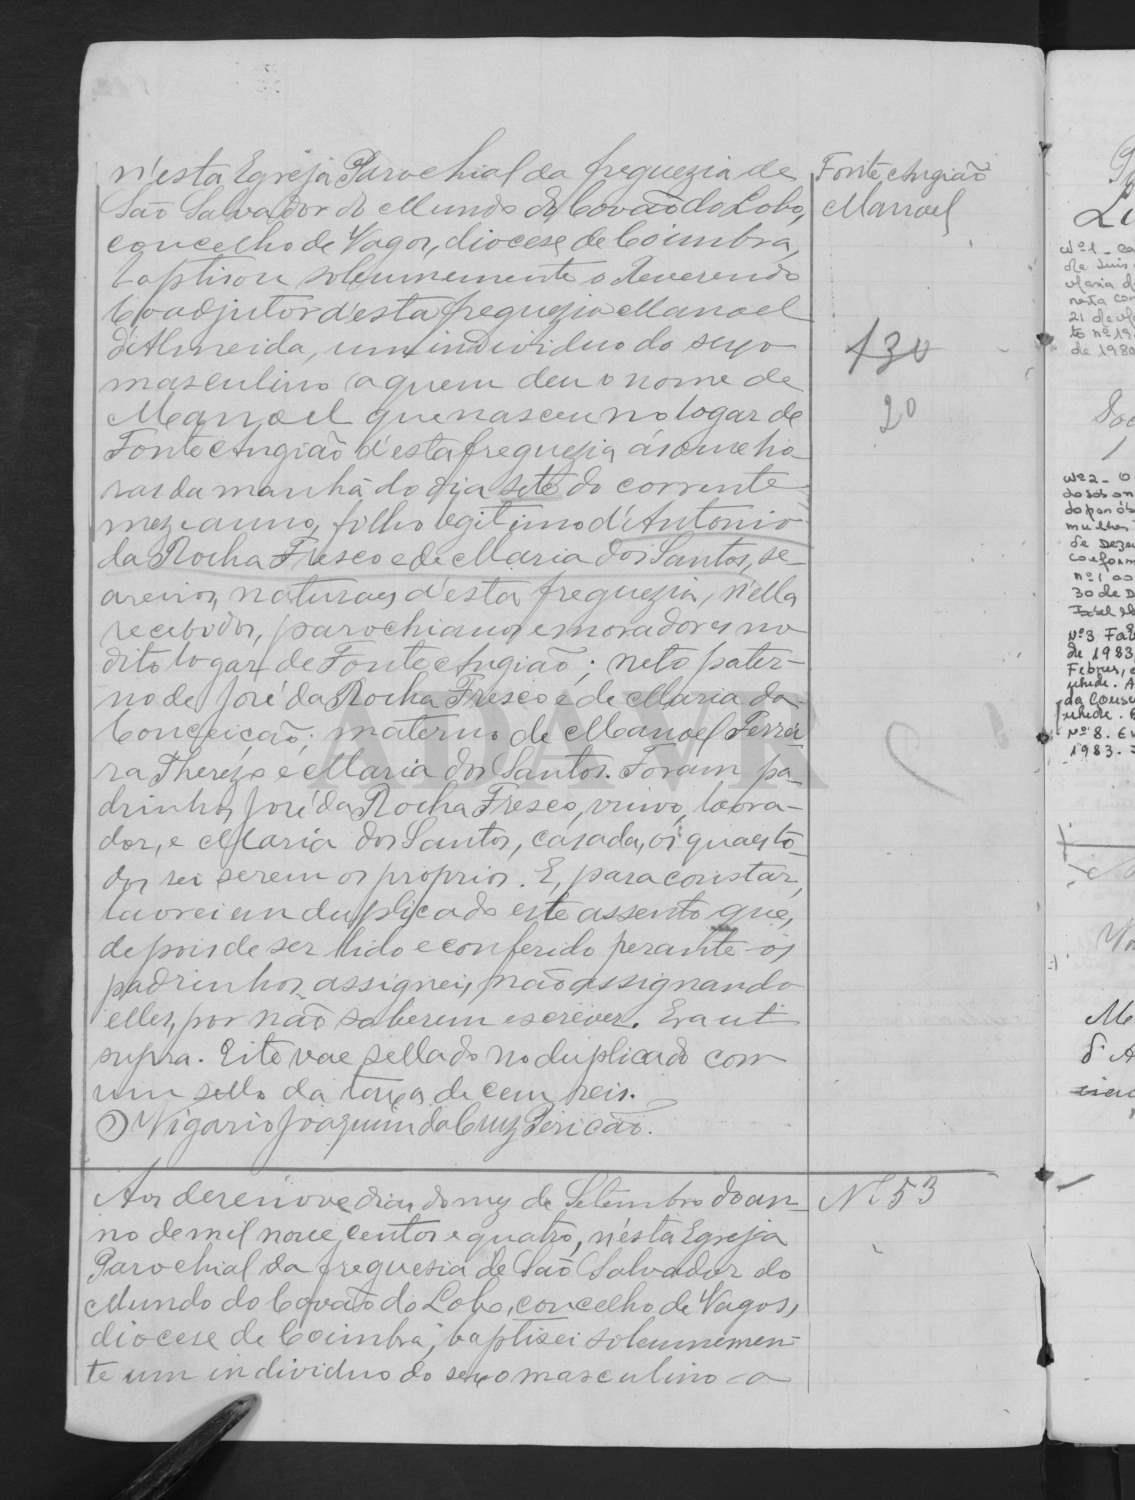 n'esta Egreja Parochial da freguezia de
São Salvador do Mundo do Covão do Lobo,
concelho de Vagos, diocese de Coimbra,
baptisou solemnemente o Reverendo
Coadjutor d'esta freguezia Manoel
d'Almeida, um individuo do sexo
masculino a quem deu o nome de
Manoel que nasceu no logar de
Fonte Angião d'esta freguezia ás onze ho-
ras da manhã do dia sete do corrente
mez e anno, filho legitimo d'Antonio
da Rocha Fresco e de Maria dos Santos, se-
areiros, naturaes d'esta freguezia, n'ella
recebidos, parochianos e moradores no
dito logar de Fonte Angião; neto pater-
no de José da Rocha Fresco e de Maria da
Conceição; materno de Manoel Ferrei-
ra Thereza e Maria dos Santos. Foram pa-
drinhos José da Rocha Fresco, viuvo, lavra-
dor, e Maria dos Santos, casada, os quaes to-
dos sei serem os proprios. E, para constar,
lavrei em duplicado este assento que,
depois de ser lido e conferido perante os
padrinhos, assignei, não assignando
elles, por não saberem escrever. Era ut
supra. Este vae sellado no duplicado com
um sello da taxa de cem reis.
O Vigario Joaquim da Cruz Pericão.
Fonte Angião
Manoel
130
20
Aos desenove dias do mez de Setembro do an-
no de mil nove centos e quatro, n'esta Egreja
Parochial da freguesia de São Salvador do
Mundo do Covão do Lobo, concelho de Vagos,
diocese de Coimbra, baptisei solemnemen-
te um individuo do sexo masculino a
Nº 53
ADAVR
Nº 1 -
de Luis
Maria d
21 de
de 1980
Nº 2 - O
de Deze
conform
nº 1 00
30 de D
Nº 3 Fal
de 1983
1983.